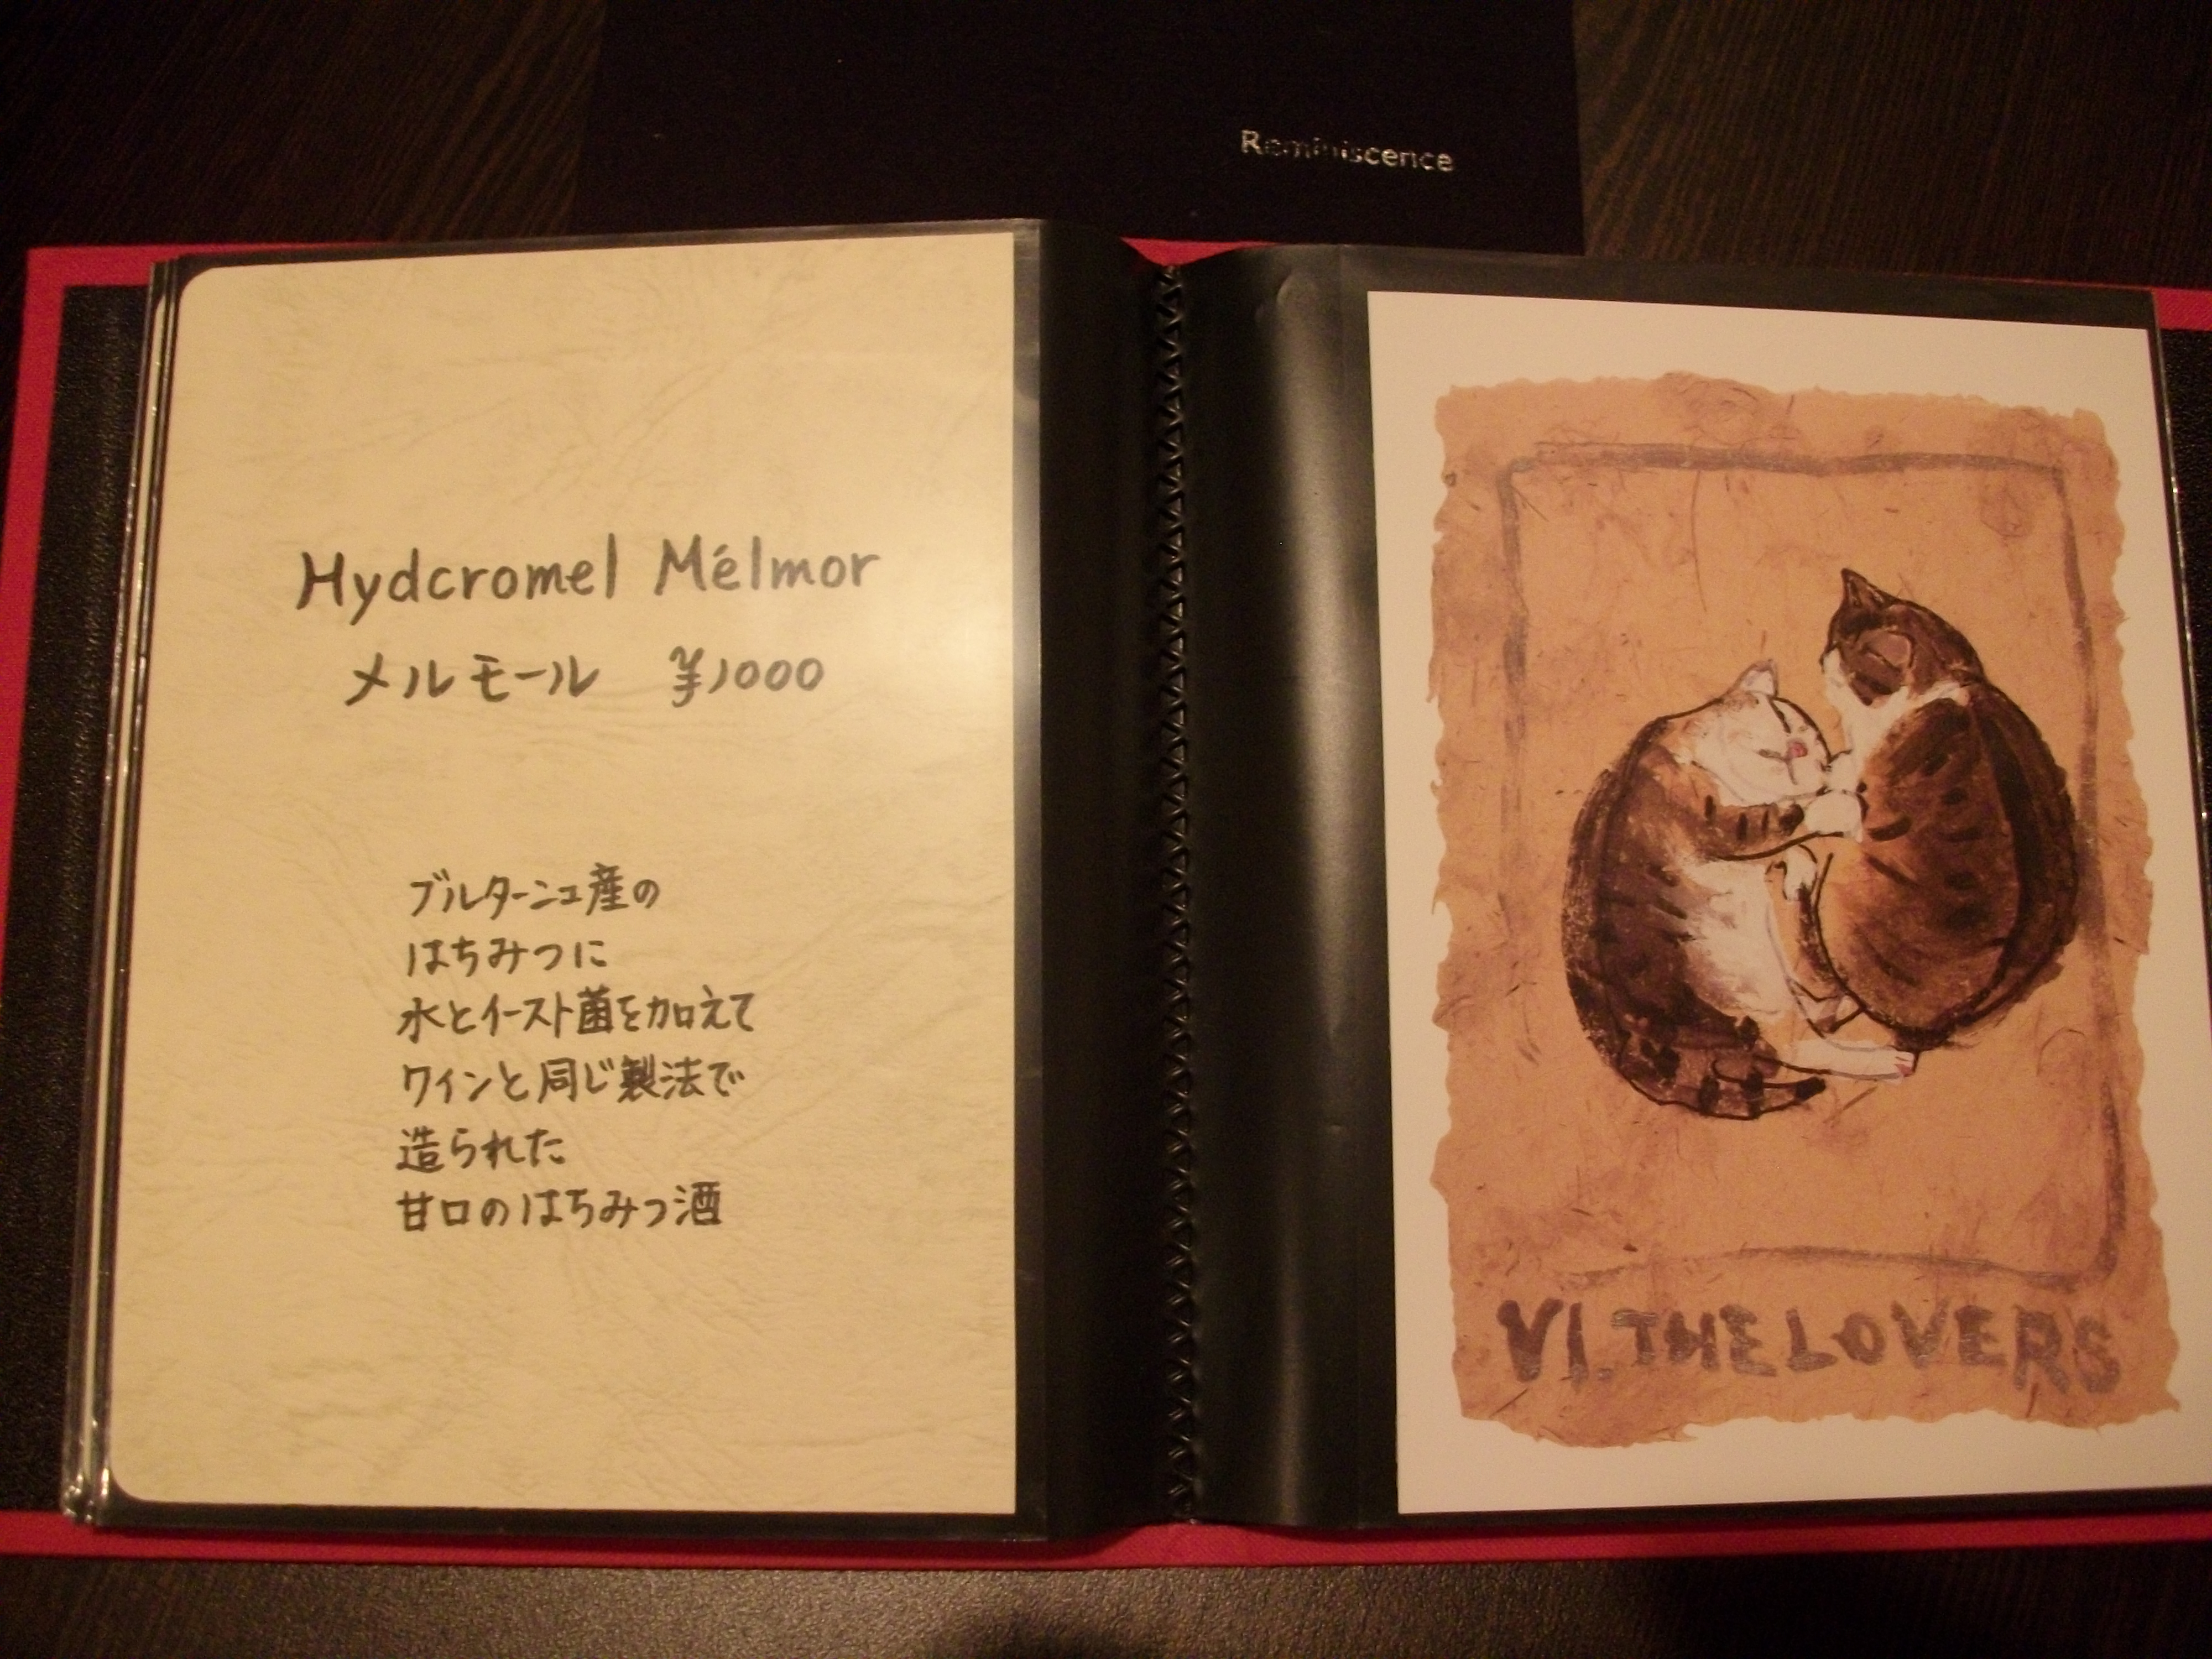 Reminiscence
Hydcromel Mélmor
メルモール ¥1000
ブルターニュ産の
はちみつに
水とイースト菌を加えて
ワインと同じ製法で
造られた
甘口のはちみつ酒
VI. THE LOVERS